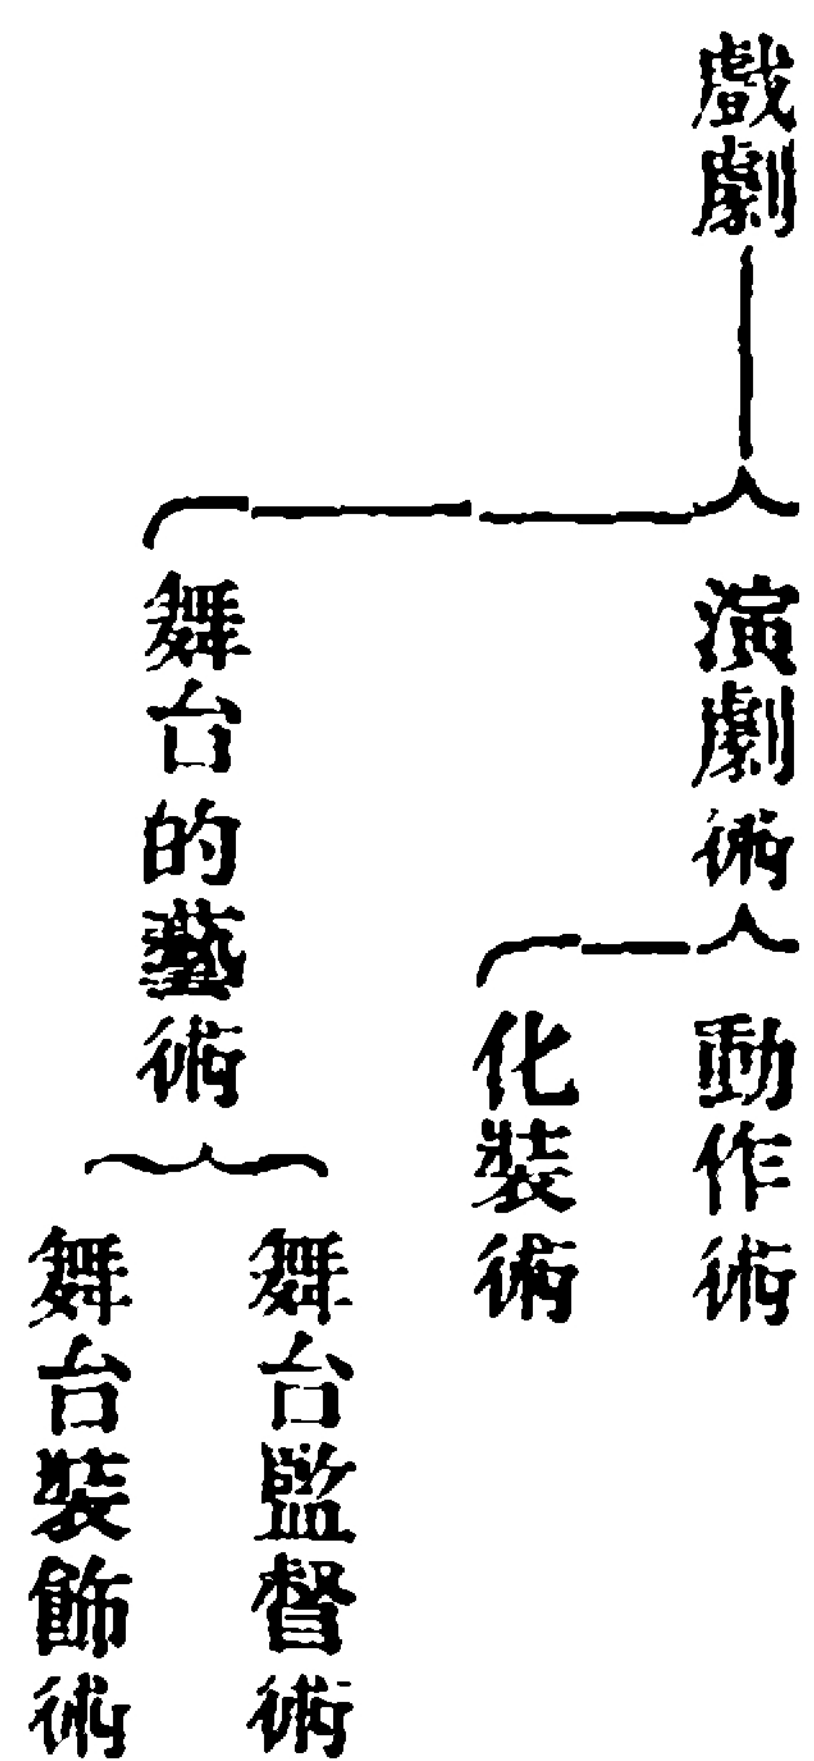 戲劇
演劇術
動作術
化裝術
舞台的藝術
舞台監督術
舞台裝飾術